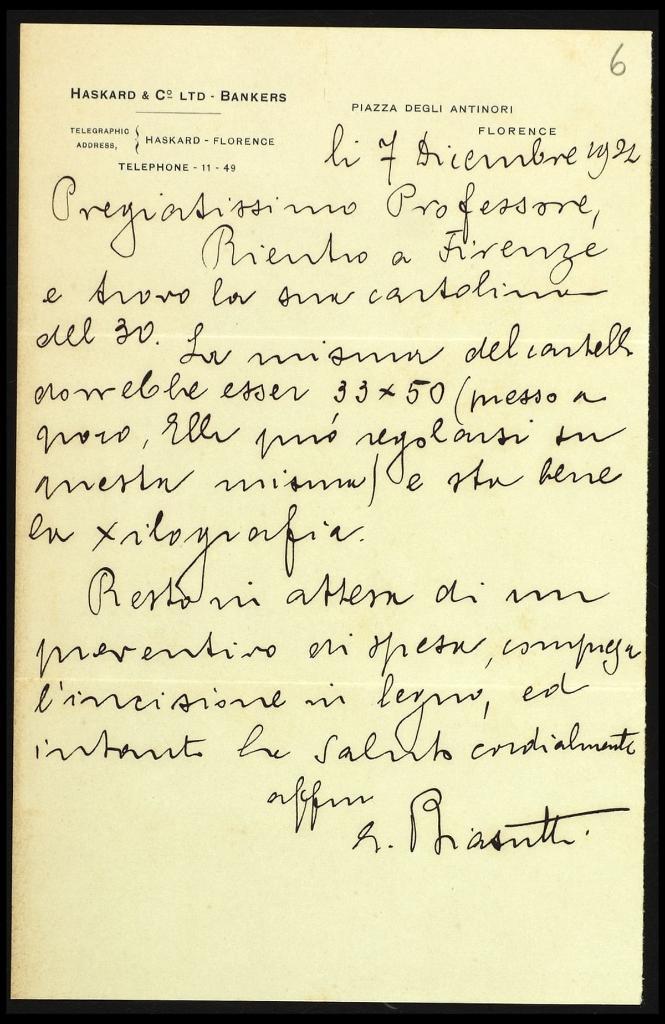 6
HASKARD & Cº LTD - BANKERS
PIAZZA DEGLI ANTINORI
FLORENCE
TELEGRAPHIC ADDRESS, { HASKARD - FLORENCE
TELEPHONE - 11 - 49
li 7 Dicembre 1922
Pregiatissimo Professore,
Rientro a Firenze
e trovo la sua cartolina
del 30. La misura del cartello
dovrebbe esser 33 x 50 (presso a
poco, Ella può regolarsi su
questa misura) e sta bene
la xilografia.
Resto in attesa di un
preventivo di spesa, compresa
l'incisione in legno, ed
intanto la saluto cordialmente
affmo
Biasutti.